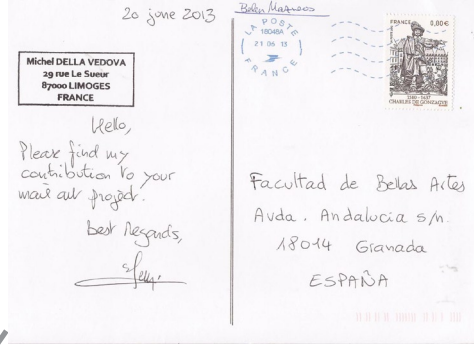 20 june 2013
Belen Mateos
LA POSTE
18048A
21 06 13
FRANCE
FRANCE
0,80 €
1580 - 1637
CHARLES DE GONZAGUE
Michel DELLA VEDOVA
29 rue Le Sueur
87000 LIMOGES
FRANCE
Hello,
Please find my
contribution to your
mail art project.
Best Regards,
Facultad de Bellas Artes
Avda. Andalucia s/n.
18014 Granada
ESPAÑA